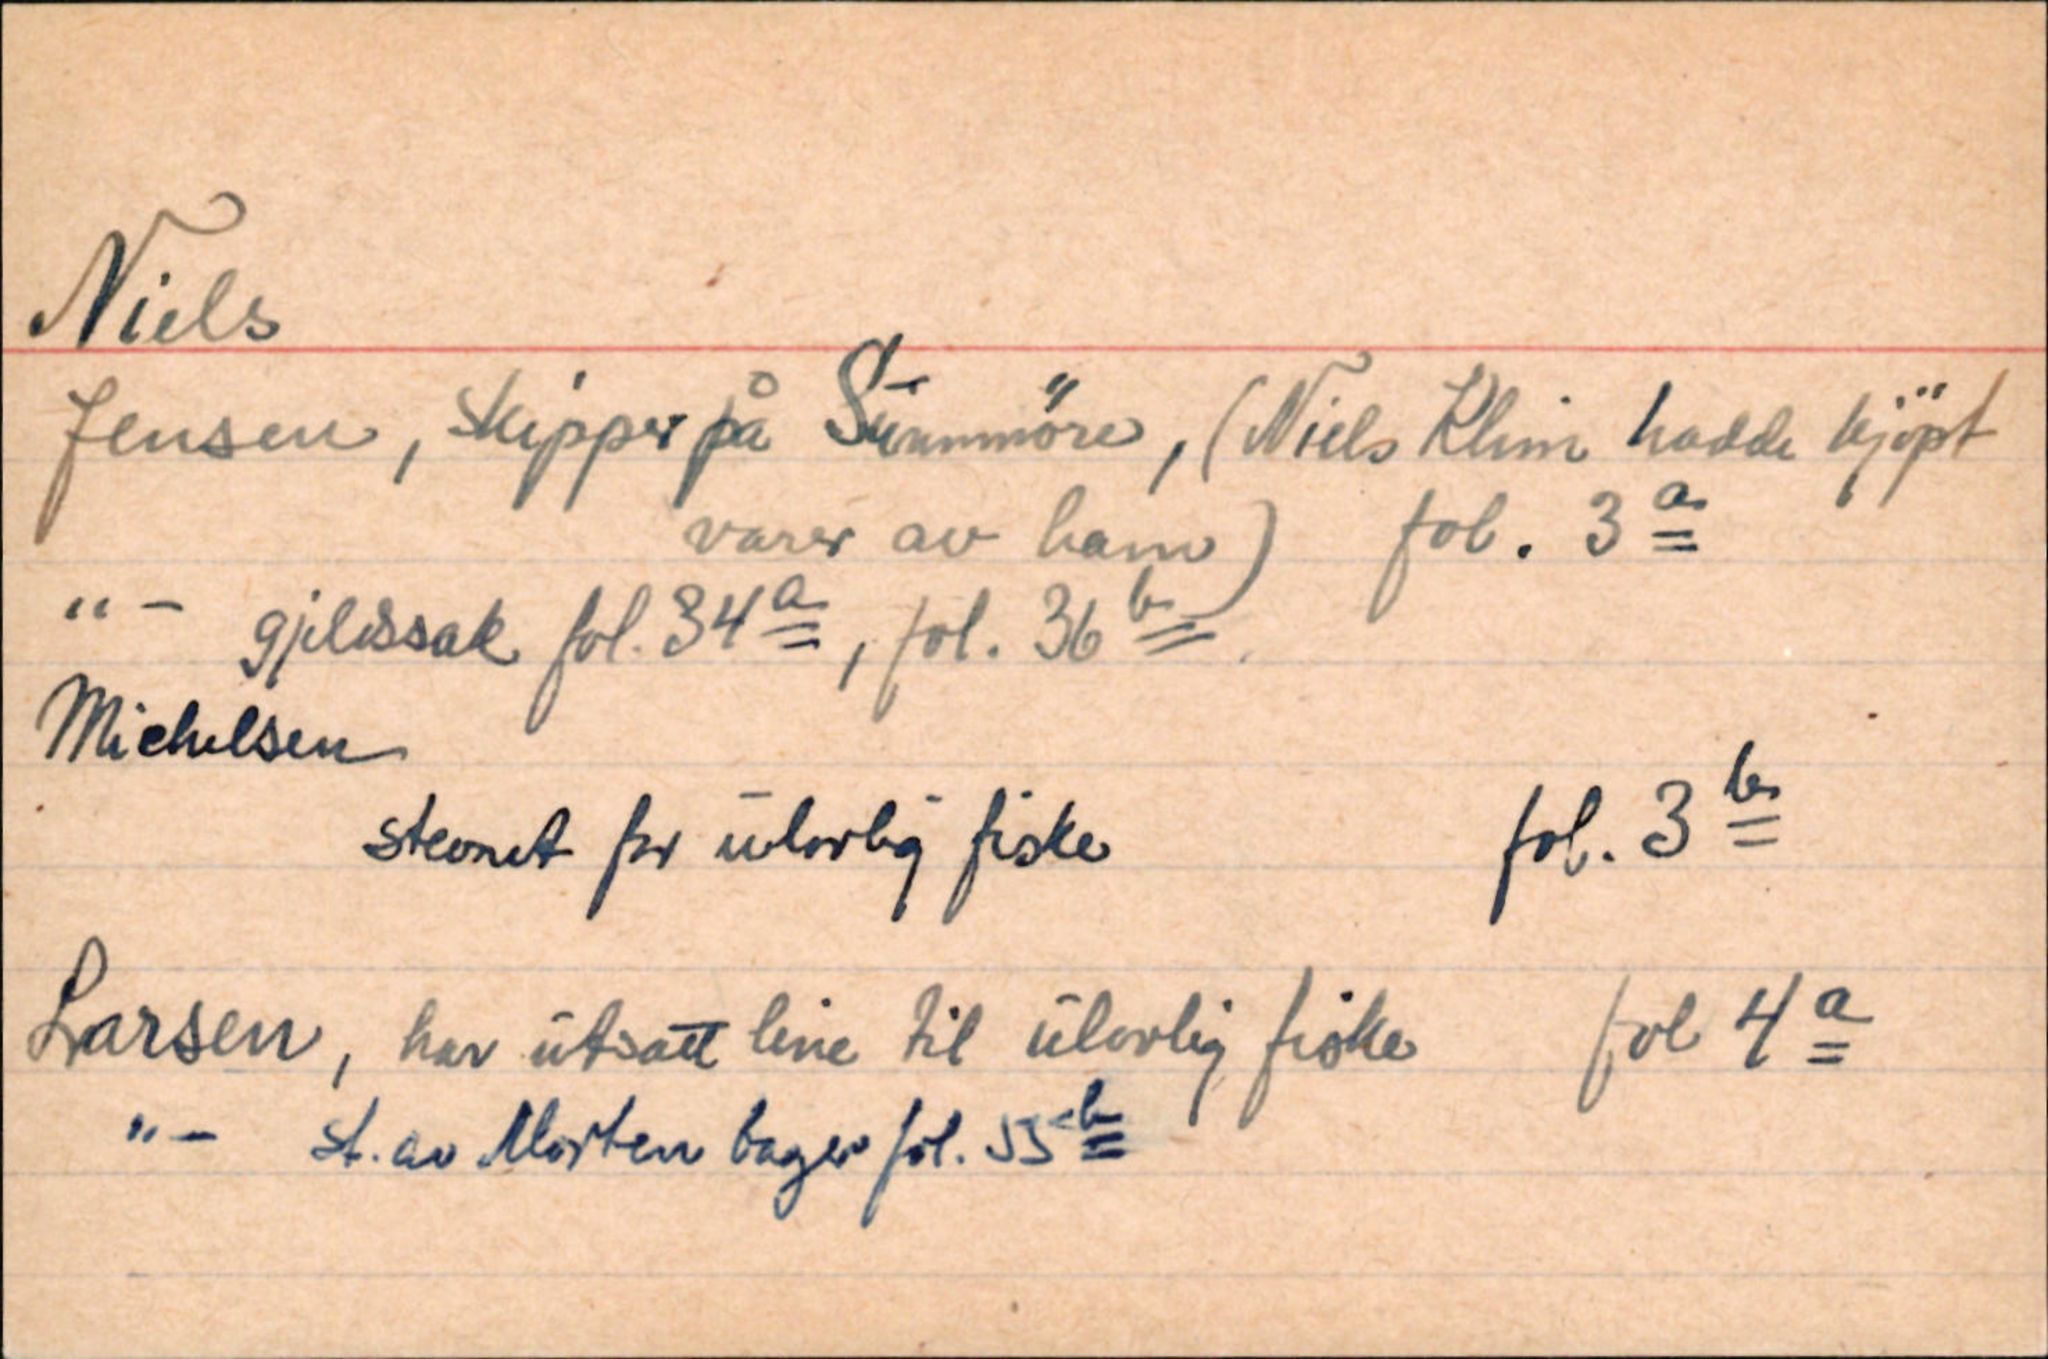 Niels
Jensen, skipper på Sunnmöre, (Niels Klim hadde kjöpt
varer av ham) fol. 3 a
"- gjeldssak fol. 34 a, fol. 36 b.
Michelsen
stevnet for ulovlig fiske fol. 3 b
Larsen, har utsatt line til ulovlig fiske fol 4 a
"- st. av Morten bager fol. 55 b